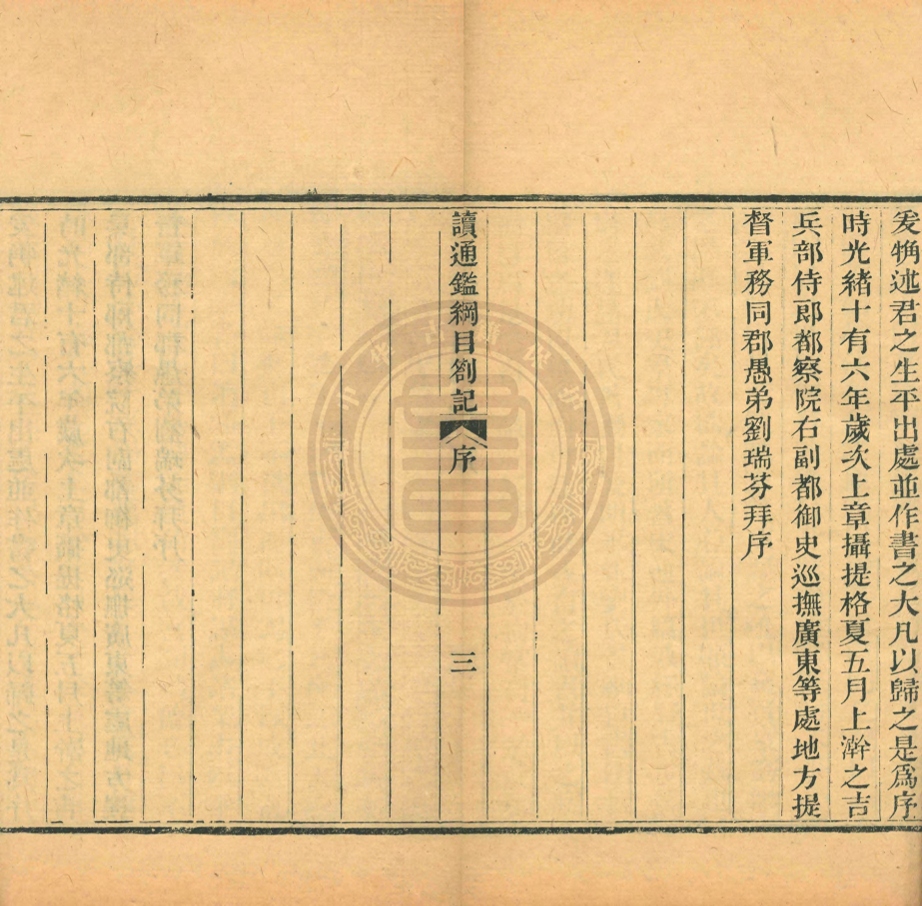 爰觕述君之生平出處並作書之大凡以歸之是爲序
時光緒十有六年歲次上章攝提格夏五月上澣之吉
兵部侍郎都察院右副都御史巡撫廣東等處地方提
督軍務同郡愚弟劉瑞芬拜序
讀通鑑綱目劄記 序 三